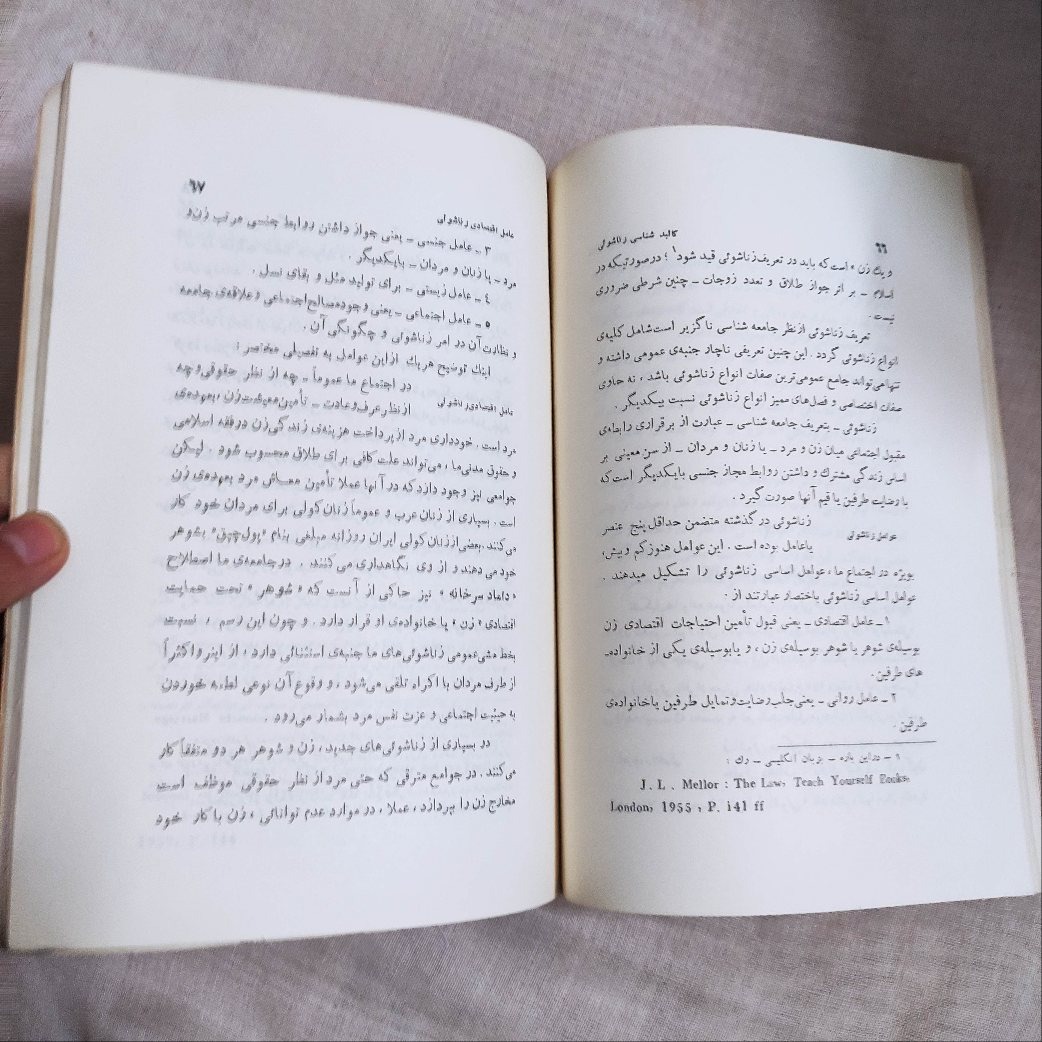 ۶۶
کالبد شناسی زناشوئی
و یك زن » است که باید در تعریف زناشوئی قید شود۱ ؛ در صورتیکه در
اسلام ـ بر اثر جواز طلاق و تعدد زوجات ـ چنین شرطی ضروری
نیست .
تعریف زناشوئی از نظر جامعه شناسی ناگزیر است شامل کلیه‌ی
انواع زناشوئی گردد . این چنین تعریفی ناچار جنبه‌ی عمومی داشته و
تنها می‌تواند جامع عمومی‌ترین صفات انواع زناشوئی باشد ، نه حاوی
صفات اختصاصی و فصل‌های ممیز انواع زناشوئی نسبت بیکدیگر .
زناشوئی ـ بتعریف جامعه شناسی ـ عبارت از برقراری رابطه‌ی
مقبول اجتماعی میان زن و مرد ـ یا زنان و مردان ـ از سن معینی بر
اساس زندگی مشترك و داشتن روابط مجاز جنسی با یکدیگر است که
با رضایت طرفین یا قیم آنها صورت گیرد .
عوامل زناشوئی
زناشوئی در گذشته متضمن حداقل پنج عنصر
یا عامل بوده است . این عوامل هنوز کم و بیش ،
بویژه در اجتماع ما ، عوامل اساسی زناشوئی را تشکیل میدهند .
عوامل اساسی زناشوئی باختصار عبارتند از :
۱ ـ عامل اقتصادی ـ یعنی قبول تأمین احتیاجات اقتصادی زن
بوسیله‌ی شوهر یا شوهر بوسیله‌ی زن ، و یا بوسیله‌ی یکی از خانواده‌ـ
های طرفین .
۲ ـ عامل روانی ـ یعنی جلب رضایت و تمایل طرفین یا خانواده‌ی
طرفین .
۱ ـ در این باره ـ بزبان انگلیسی ـ رك :
J. L. Mellor : The Law, Teach Yourself Books,
London, 1955 , P. 141 ff
۶۷
عامل اقتصادی زناشوئی
۳ ـ عامل جنسی ـ یعنی جواز داشتن روابط جنسی مرتب زن و
مرد ـ یا زنان و مردان ـ با یکدیگر .
٤ ـ عامل زیستی ـ برای تولید مثل و بقای نسل .
۵ ـ عامل اجتماعی ـ یعنی وجود مصالح اجتماعی و علاقه‌ی جامعه
و نظارت آن در امر زناشوئی و چگونگی آن .
اینك توضیح هر یك از این عوامل به تفصیلی مختصر :
عامل اقتصادی زناشوئی
در اجتماع ما عموماً ـ چه از نظر حقوقی و چه
از نظر عرف و عادت ـ تأمین معیشت زن ، بعهده‌ی
مرد است . خودداری مرد از پرداخت هزینه‌ی زندگی زن در فقه اسلامی
و حقوق مدنی ما ، می‌تواند علت کافی برای طلاق محسوب شود . لیکن
جوامعی نیز وجود دارد که در آنها عملا تأمین معاش مرد بعهده‌ی زن
است . بسیاری از زنان عرب و عموماً زنان کولی برای مردان خود کار
می‌کنند . بعضی از زنان کولی ایران روزانه مبلغی بنام «پول چپق» بشوهر
خود می‌دهند و از وی نگاهداری می‌کنند . در جامعه‌ی ما اصطلاح
«داماد سرخانه» نیز حاکی از آنست که « شوهر » تحت حمایت
اقتصادی « زن » یا خانواده‌ی او قرار دارد . و چون این رسم ، نسبت
بخط مشی عمومی زناشوئی‌های ما جنبه‌ی استثنائی دارد ، از اینرو اکثراً
از طرف مردان با اکراه تلقی می‌شود ، و وقوع آن نوعی لطمه خوردن
به حیثیت اجتماعی و عزت نفس مرد بشمار می‌رود .
در بسیاری از زناشوئی‌های جدید ، زن و شوهر هر دو متفقاً کار
می‌کنند . در جوامع مترقی که حتی مرد از نظر حقوقی موظف است
مخارج زن را بپردازد ، عملا ، در موارد عدم توانائی ، زن با کار خود